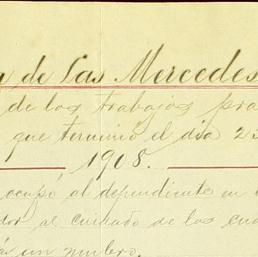 de Las Mercedes
de los trabajos pra
que terminó el dia 23
1908.
ocupó al dependiente en
dor al cuidado de los cua
un numero.